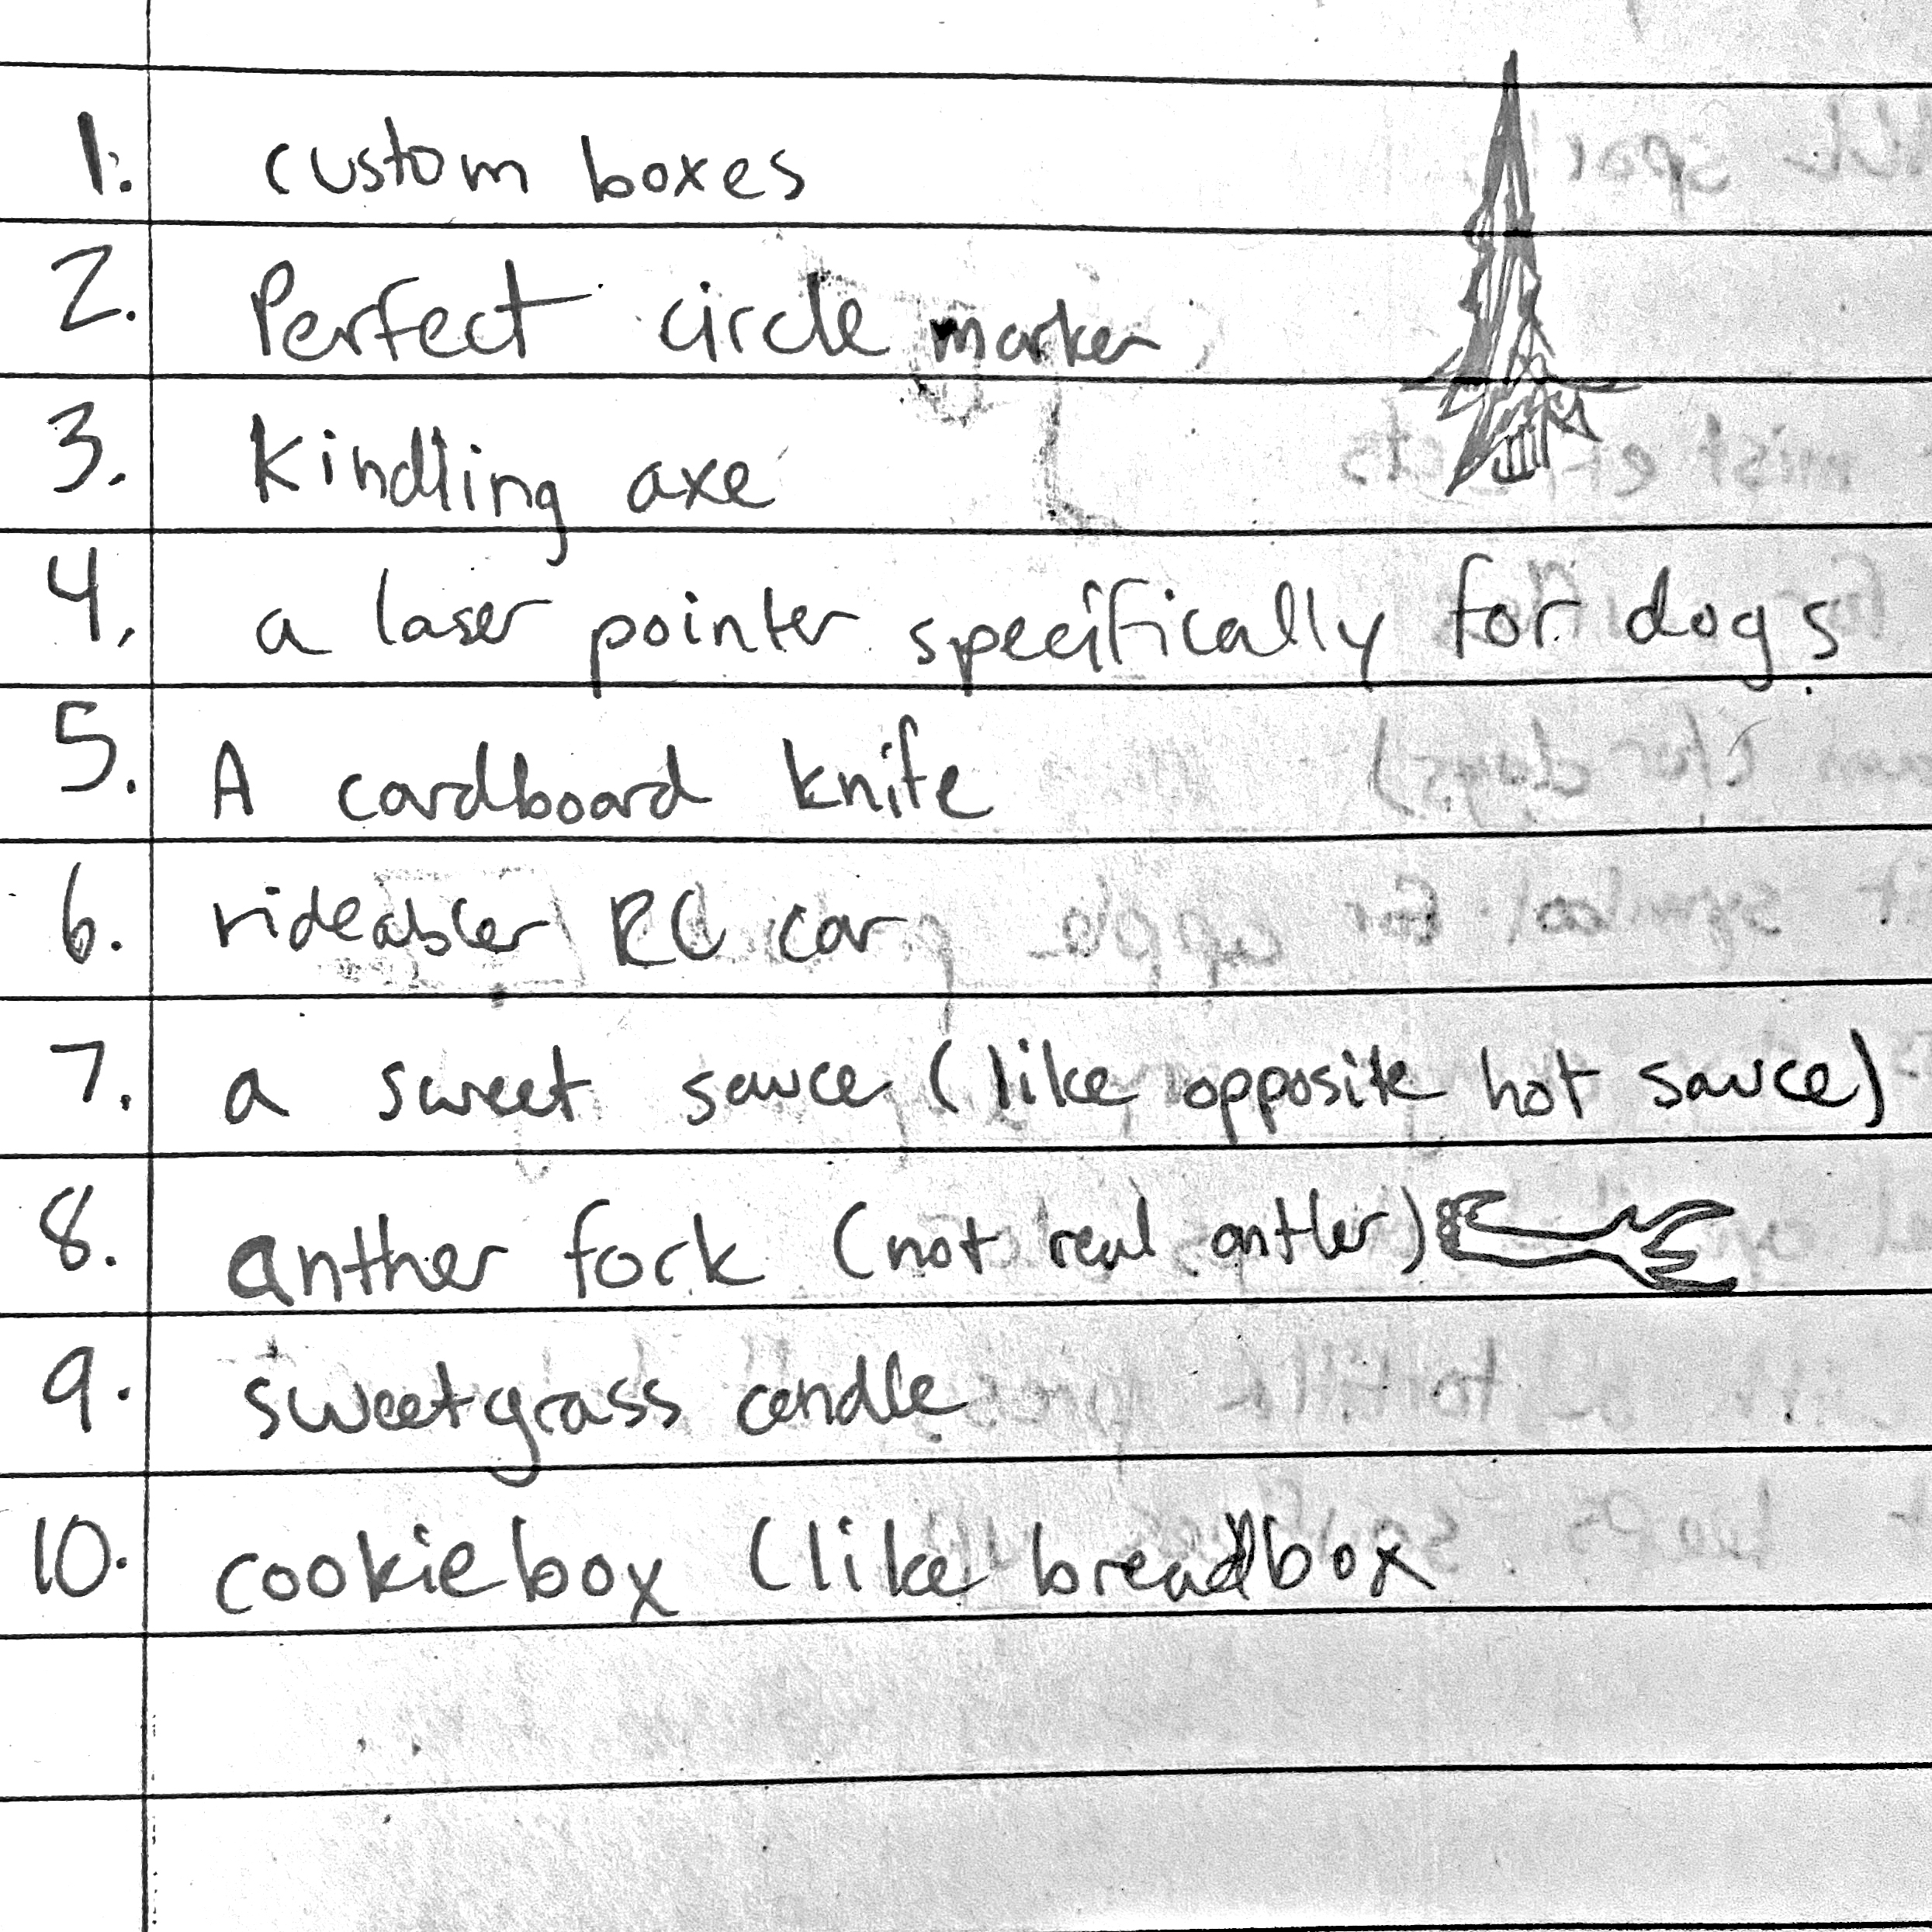 1. custom boxes
2. Perfect circle marker
3. Kindling axe
4. a laser pointer specifically for dogs
5. A cardboard knife
6. rideabler RC car
7. a sweet sauce (like opposite hot sauce)
8. anther fork (not real antler)
9. sweetgrass candle
10. cookiebox (like breadbox